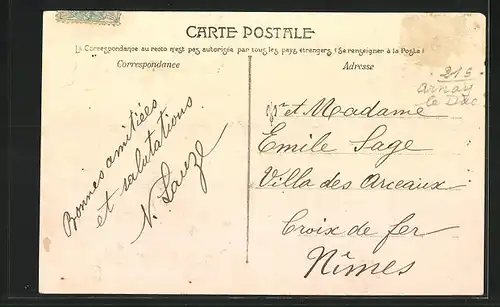 CARTE POSTALE
La Correspondance au recto n'est pas autorisée par tous les pays étrangers (Se renseigner à la Poste)
Correspondance
Adresse
Bonnes amitiées
et salutations
N. Lauze
215
Arnay
le Duc
Mr et Madame
Emile Sage
Villa des Arceaux
Croix de fer
Nîmes